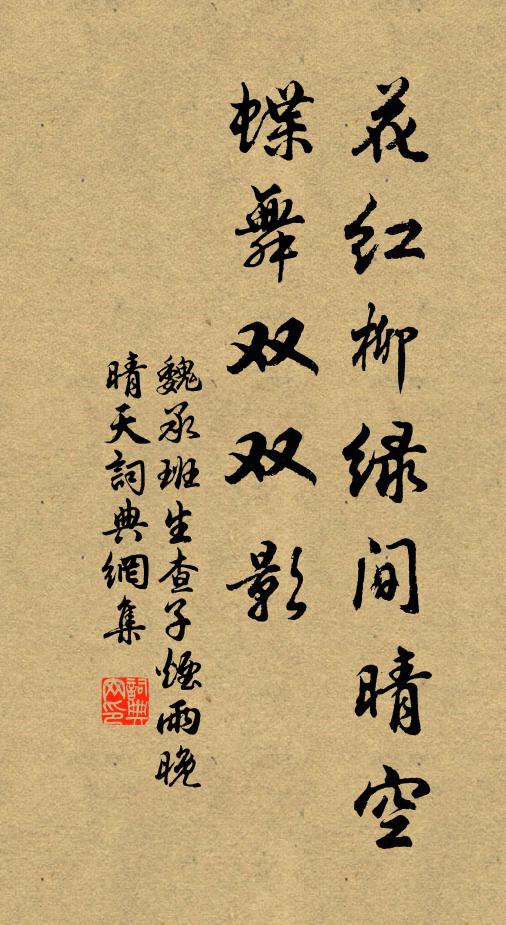 花红柳绿间晴空
蝶舞双双影
魏承班生查子烟雨晚
晴天詞典網集
詞典網印